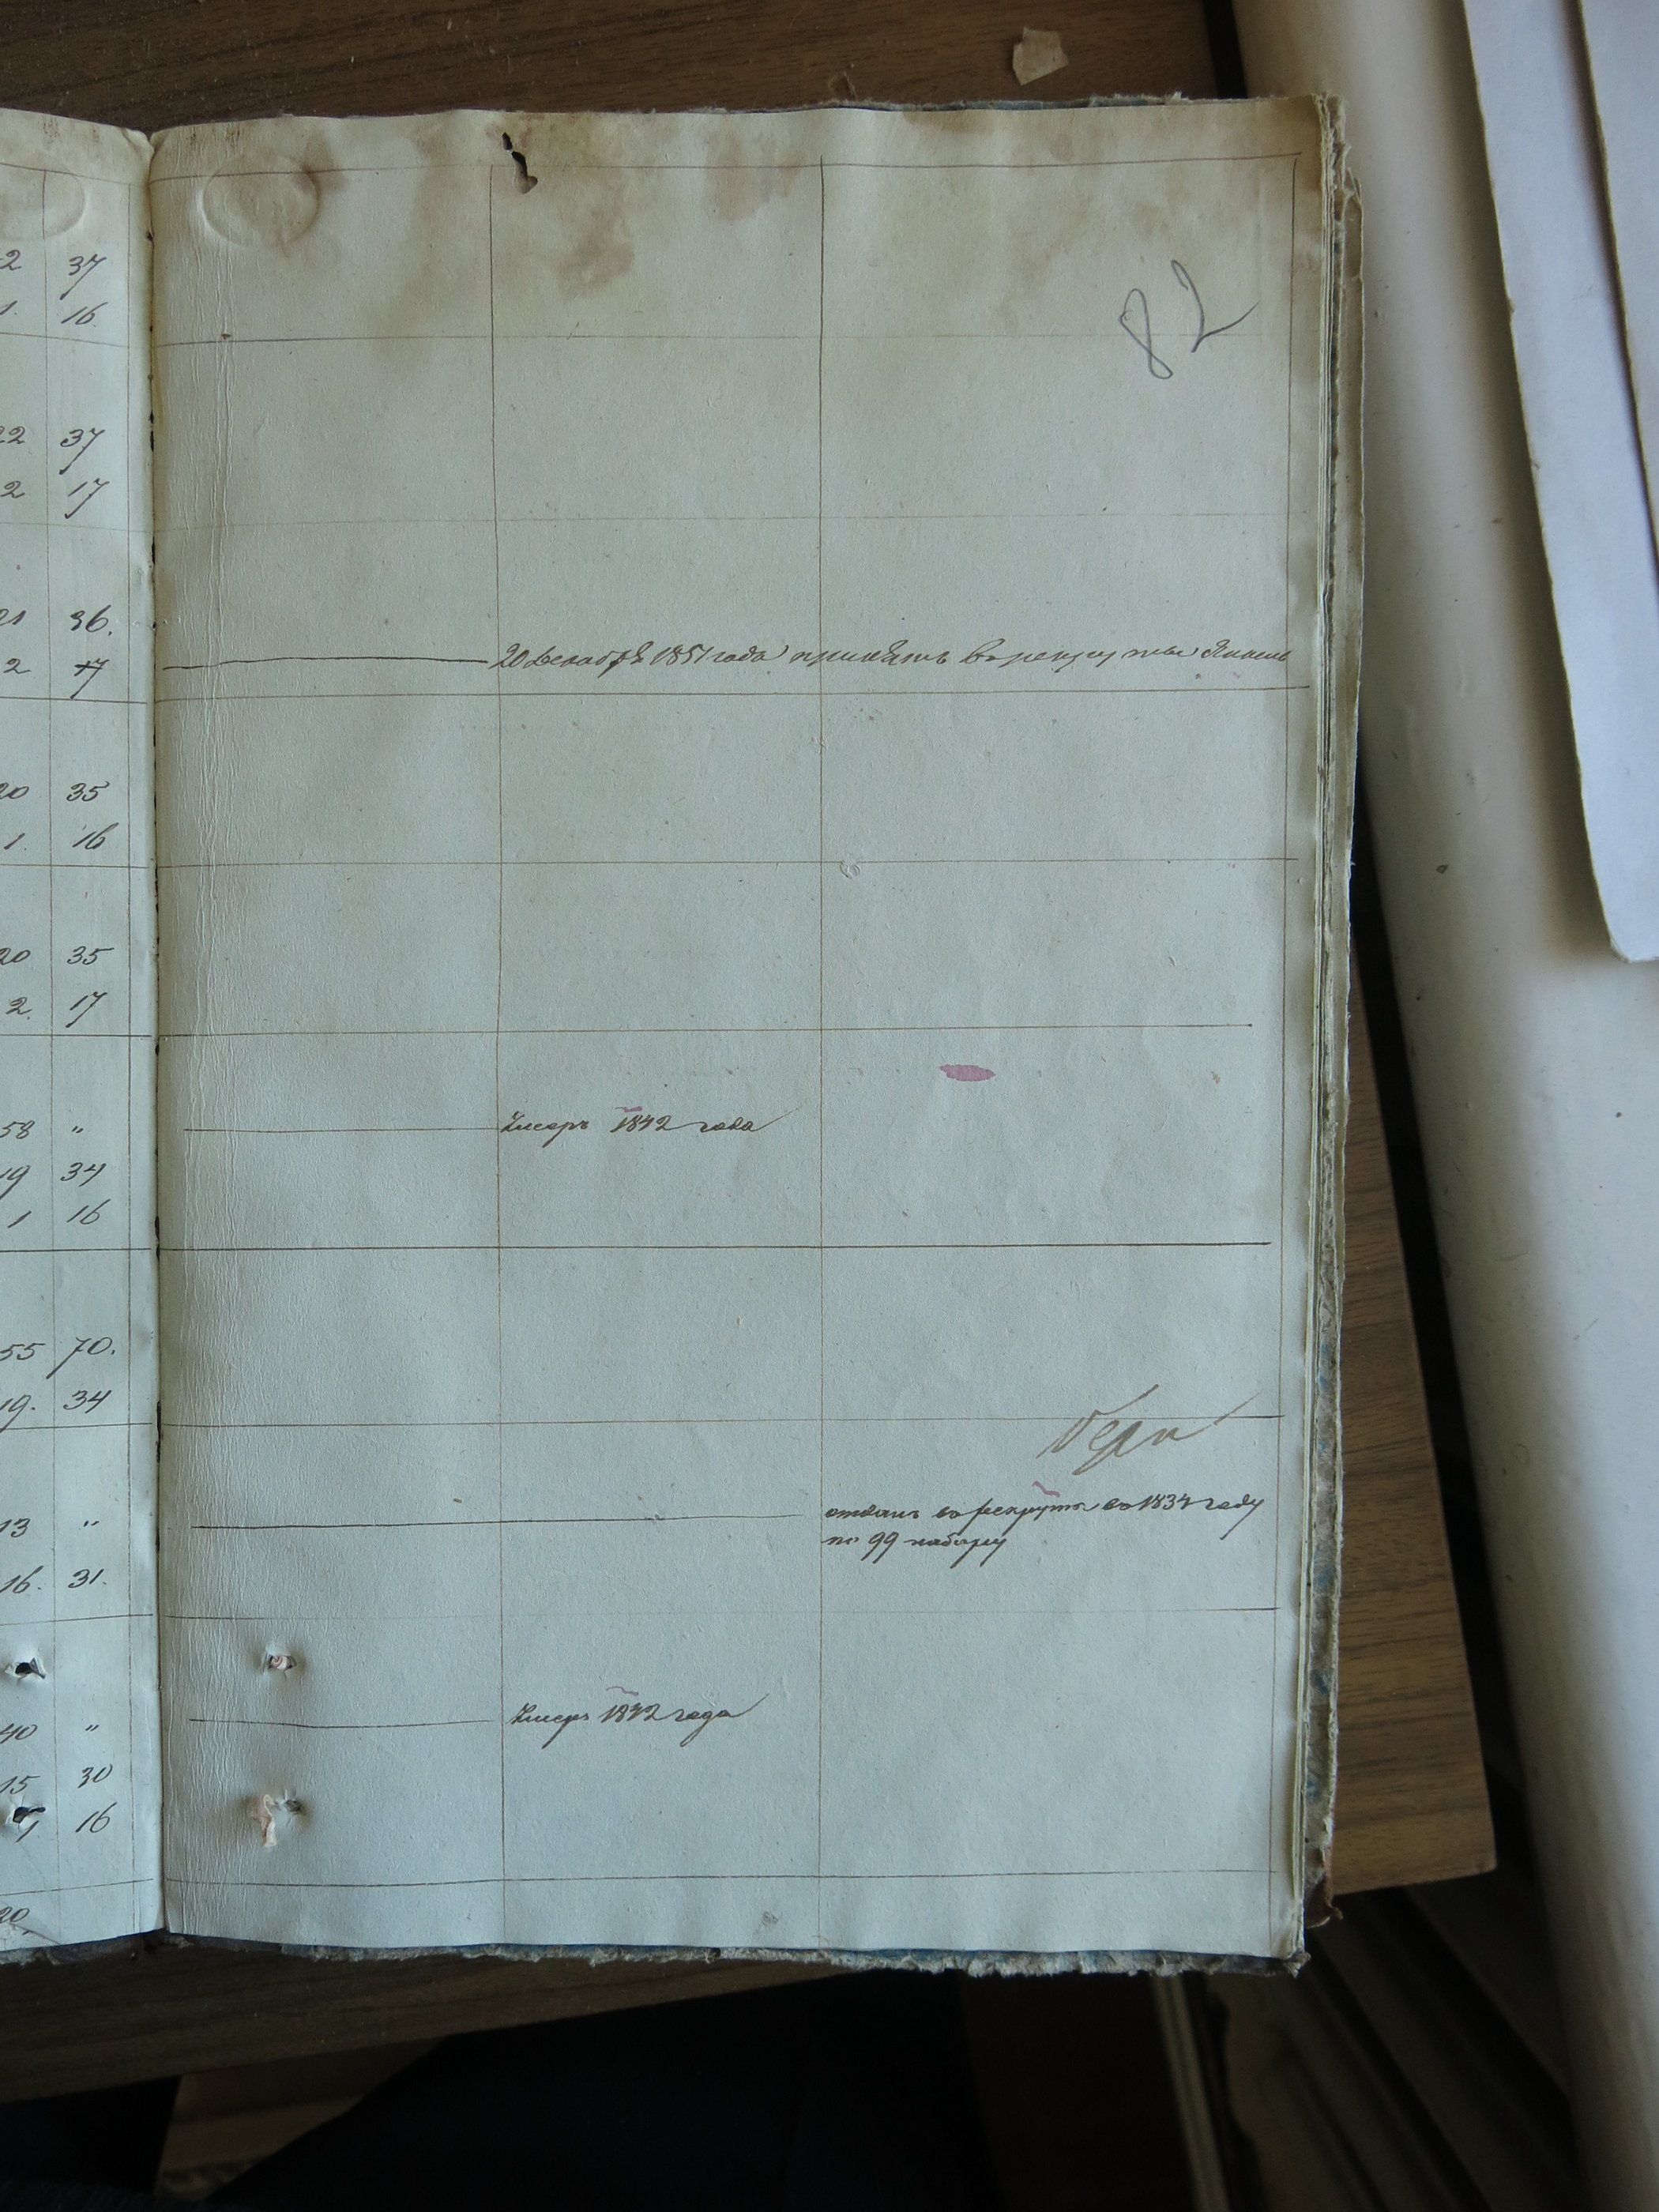 82
2 37
1. 16.
22 37
2 17
21 36.
2 17
20 Декабря 1851 года принятъ въ рекруты
20 35
1. 16
20 35
2. 17
58 „
Умеръ 1842 года
19 34
1 16
55 70.
19. 34
13 „
отданъ въ рекруты въ 1834 году
по 99 набору
16. 31.
40 „
Умеръ 1842 года
15 30
1 16
20